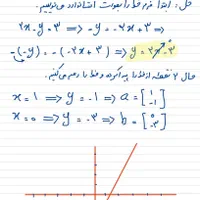 حل: ابتدا فرم خط را بصورت استاندارد می‌نویسیم.
2x-y=3 ⟹ -y=-2x+3 ⟹
-(-y)=-(-2x+3) ⟹ y=2x-3
حال 2 نقطه از خط را پیدا کرده و خط را رسم می‌کنیم.
x=1 ⟹ y=-1 ⟹ a=[1 -1]
x=0 ⟹ y=-3 ⟹ b=[0 -3]